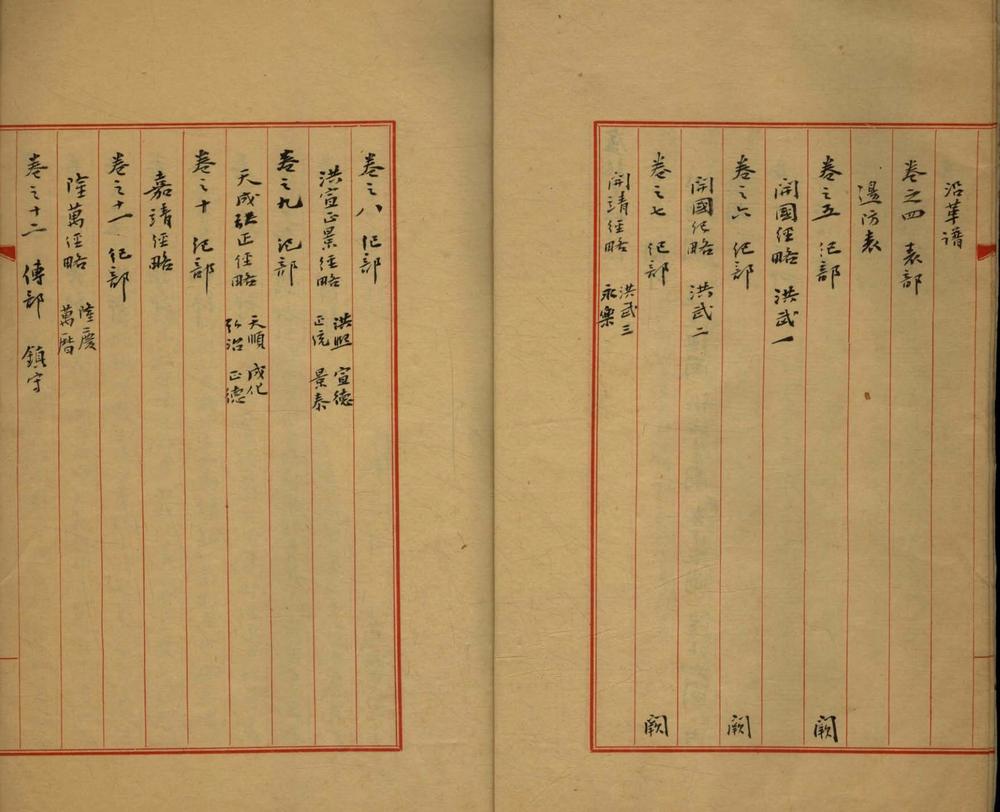 沿革譜
卷之四 表部
邊防表
卷之五 紀部 闕
開國經略 洪武一
卷之六 紀部 闕
開國經略 洪武二
卷之七 紀部 闕
開靖經略 洪武三 永樂
卷之八 紀部
洪宣正景經略 洪熙 宣德 正統 景泰
卷之九 紀部
天成弘正經略 天順 成化 弘治 正德
卷之十 紀部
嘉靖經略
卷之十一 紀部
隆萬經略 隆慶 萬曆
卷之十二 傳部 鎮守